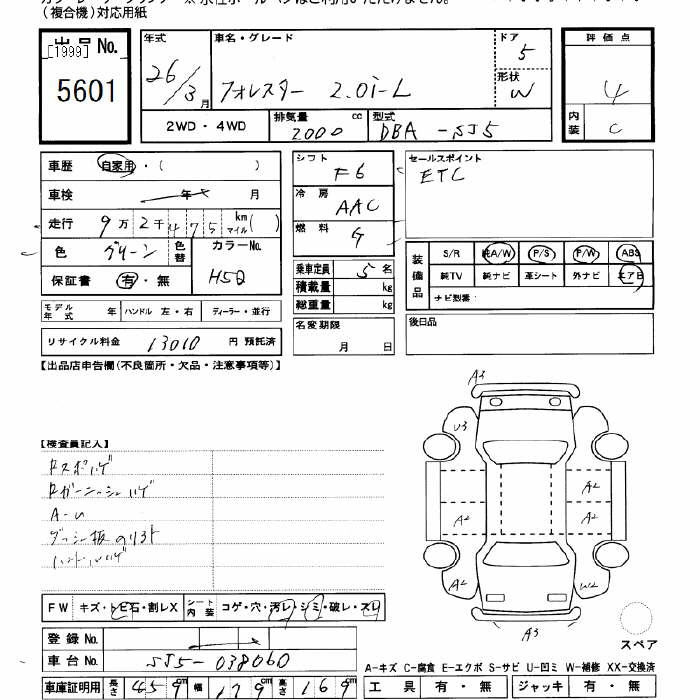 (複合機)対応用紙
出品 No.
[1999]
5601
年式
26/3月
車名・グレード
フォレスター 2.0i-L
ドア
5
形状
W
評価点
4
内装
C
2WD・4WD
排気量
2000 cc
型式
DBA-SJ5
車歴
自家用・( )
車検
年 月
走行
9万2千475 km マイル( )
色
グリーン
色替
カラーNo.
H5Q
保証書
有・無
シフト
F6
冷房
AAC
燃料
G
乗車定員
5名
積載量
kg
総重量
kg
セールスポイント
ETC
装備品
S/R 純A/W P/S P/W ABS
純TV 純ナビ 革シート 外ナビ エアB
ナビ型番:
モデル年式 年 ハンドル 左・右 ディーラー・並行
名変期限
月 日
後日品
リサイクル料金 13010 円 預託済
【出品店申告欄(不良箇所・欠品・注意事項等)】
【検査員記入】
A-U
FW キズ・トビ石・割レX
シート内装 コゲ・穴・汚レ・シミ・破レ・スレ
登録 No.
車台 No. SJ5-038060
車庫証明用 長さ 459cm 幅 179cm 高さ 169cm
A3
U3
A2
A2
A2
A2
A2
W2
A3
スペア
A-キズ C-腐食 E-エクボ S-サビ U-凹ミ W-補修 XX-交換済
工具 有・無 ジャッキ 有・無